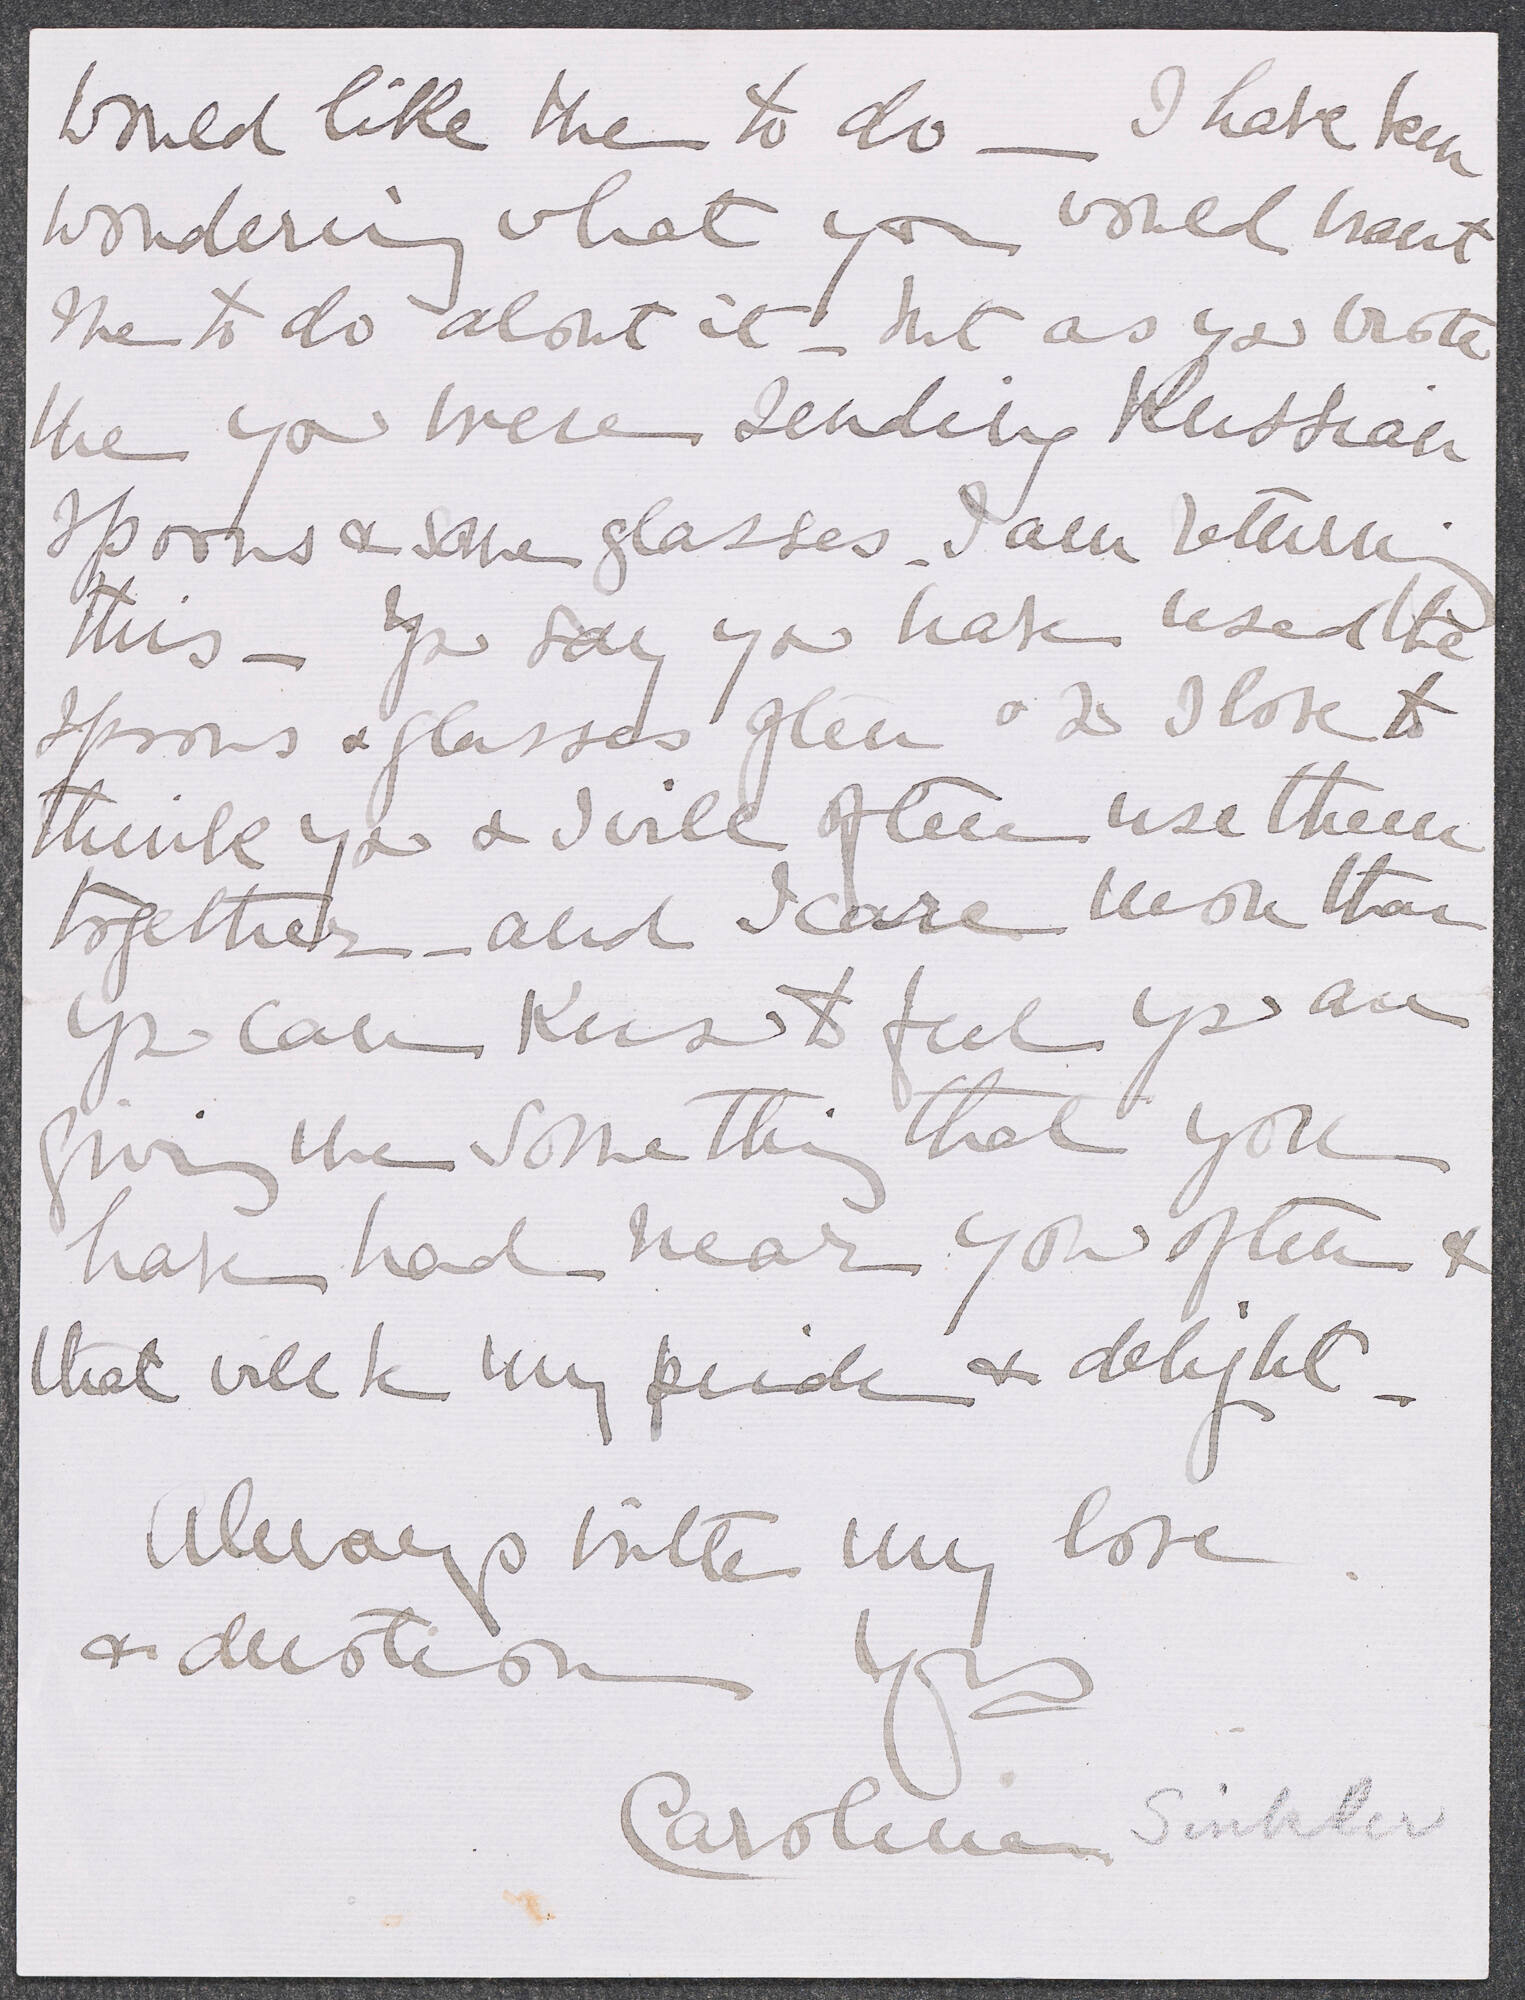 would like me to do — I have been
wondering what you would want
me to do about it – but as you wrote
me you were sending Russian
spoons & some glasses – I am returning
this – You say you have used the
spoons & glasses often & so I love to
think you & I will often use them
together – and I care more than
you can know to feel you are
giving me something that you
have had near you often &
that will be my pride & delight –
Always with my love
& devotion Yrs
Caroline Sinkler